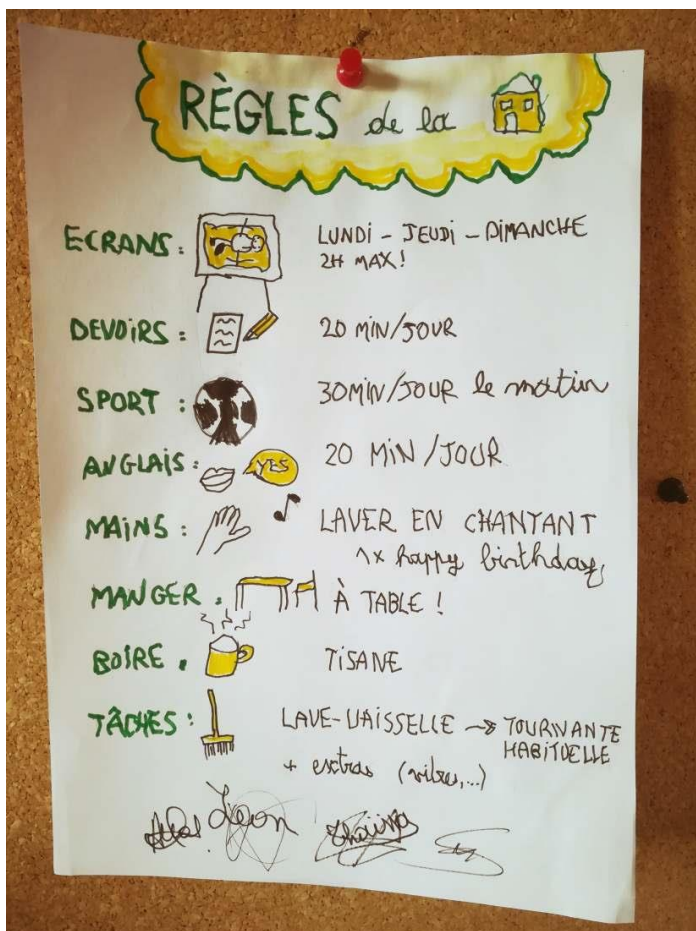 RÈGLES de la
ECRANS : LUNDI - JEUDI - DIMANCHE
2H MAX !
DEVOIRS : 20 MIN/JOUR
SPORT : 30MIN/JOUR le matin
ANGLAIS : YES 20 MIN/JOUR
MAINS : LAVER EN CHANTANT
1x happy birthday
MANGER : À TABLE !
BOIRE : TISANE
TÂCHES : LAVE-VAISSELLE → TOURNANTE
HABITUELLE
+ extras (vitres,...)
Leon